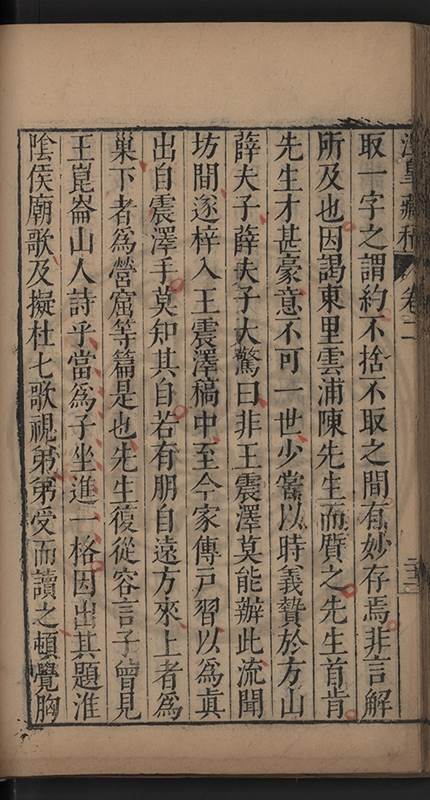 卷二
取一字之謂約不捨不取之間有妙存焉非言解
所及也因謁東里雲浦陳先生而質之先生首肯
先生才甚豪意不可一世少嘗以時義贄於方山
薛夫子薛夫子大驚曰非王震澤莫能辦此流聞
坊間遂梓入王震澤稿中至今家傳戸習以為真
出自震澤手莫知其自若有朋自遠方來上者為
巢下者為營窟等篇是也先生復從容言子曾見
王崑崙山人詩乎當為子坐進一格因出其題淮
陰侯廟歌及擬杜七歌視弟弟受而讀之頓覺胸